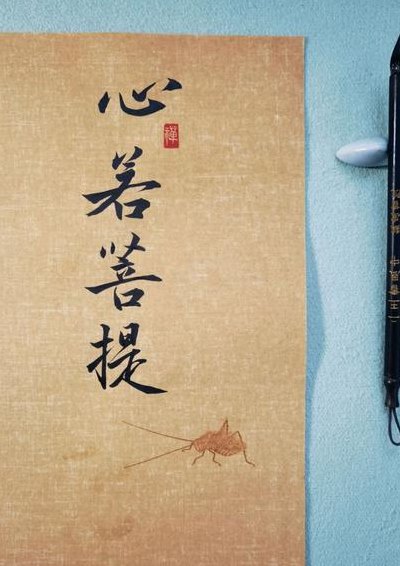 心若菩提
禅